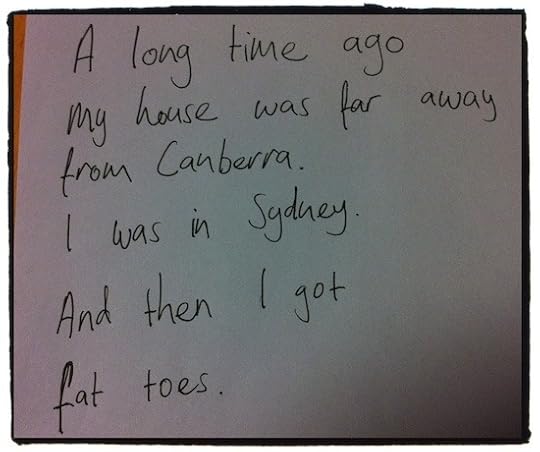 A long time ago
my house was far away
from Canberra.
I was in Sydney.
And then I got
fat toes.